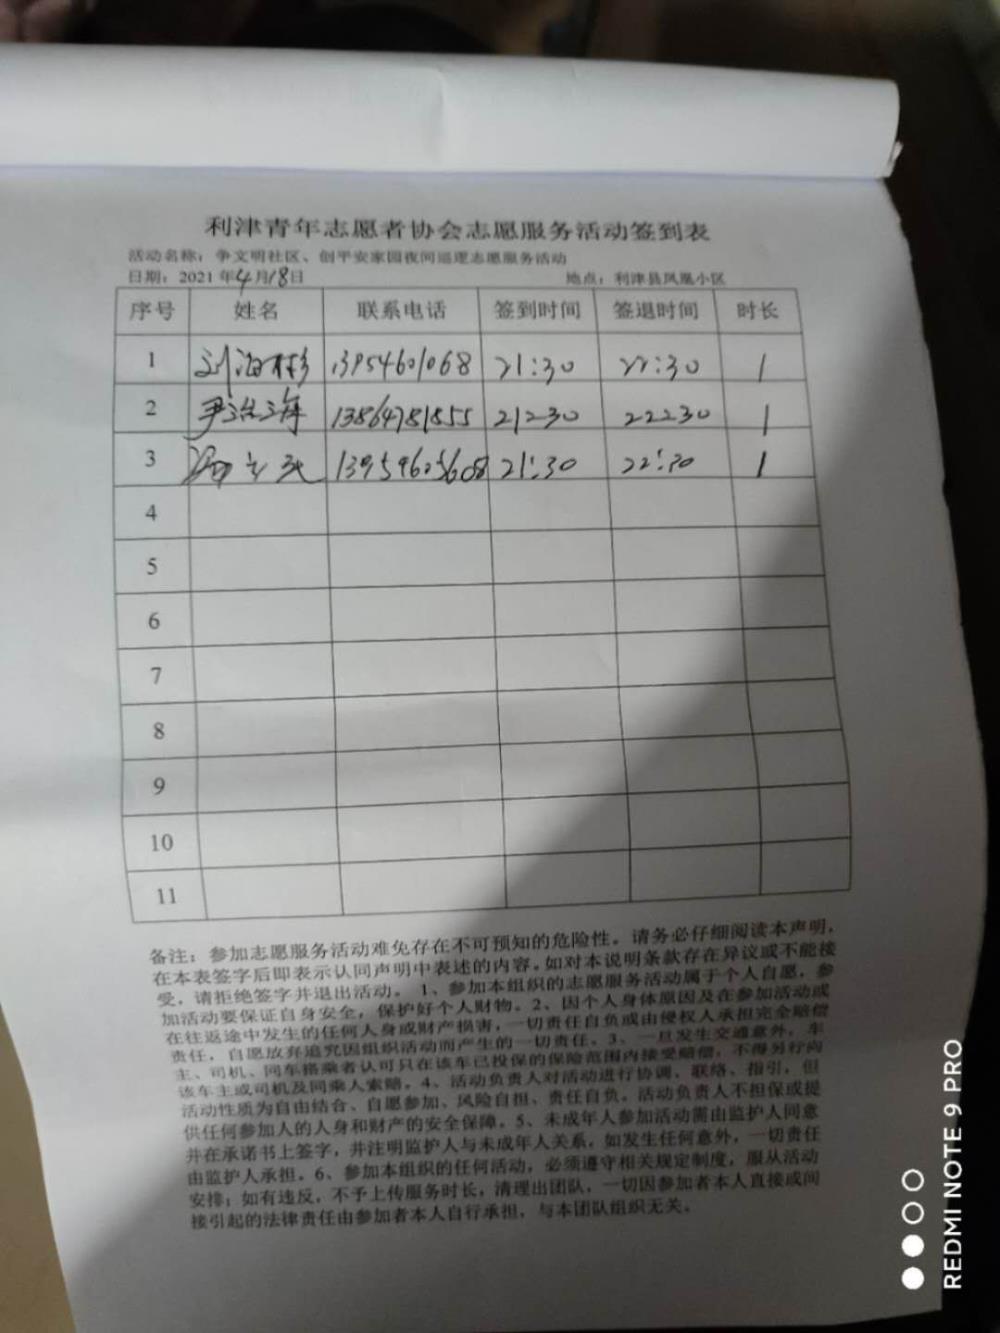 利津青年志愿者协会志愿服务活动签到表
活动名称：争文明社区、创平安家园夜间巡理志愿服务活动
日期：2021年4月18日 地点：利津县凤凰小区
序号 姓名 联系电话 签到时间 签退时间 时长
1 刘海彬 13954601068 21:30 22:30 1
2 尹 海 13864781855 21230 22230 1
3 21:30 22:30 1
4
5
6
7
8
9
10
11
备注：参加志愿服务活动难免存在不可预知的危险性。请务必仔细阅读本声明，
在本表签字后即表示认同声明中表述的内容。如对本说明条款存在异议或不能接
受，请拒绝签字并退出活动。 1、参加本组织的志愿服务活动属于个人自愿，参
加活动要保证自身安全，保护好个人财物。2、因个人身体原因及在参加活动或
在往返途中发生的任何人身或财产损害，一切责任自负或由侵权人承担完全赔偿
责任，自愿放弃追究因组织活动而产生的一切责任。3、一旦发生交通意外，车
主、司机、同车搭乘者认可只在该车已投保的保险范围内接受赔偿，不得另行向
该车主或司机及同乘人索赔。4、活动负责人对活动进行协调、联络、指引，但
活动性质为自由结合、自愿参加、风险自担、责任自负。活动负责人不担保或提
供任何参加人的人身和财产的安全保障。5、未成年人参加活动需由监护人同意
并在承诺书上签字，并注明监护人与未成年人关系，如发生任何意外，一切责任
由监护人承担。6、参加本组织的任何活动，必须遵守相关规定制度，服从活动
安排；如有违反，不予上传服务时长，清理出团队，一切因参加者本人直接或间
接引起的法律责任由参加者本人自行承担，与本团队组织无关。
REDMI NOTE 9 PRO